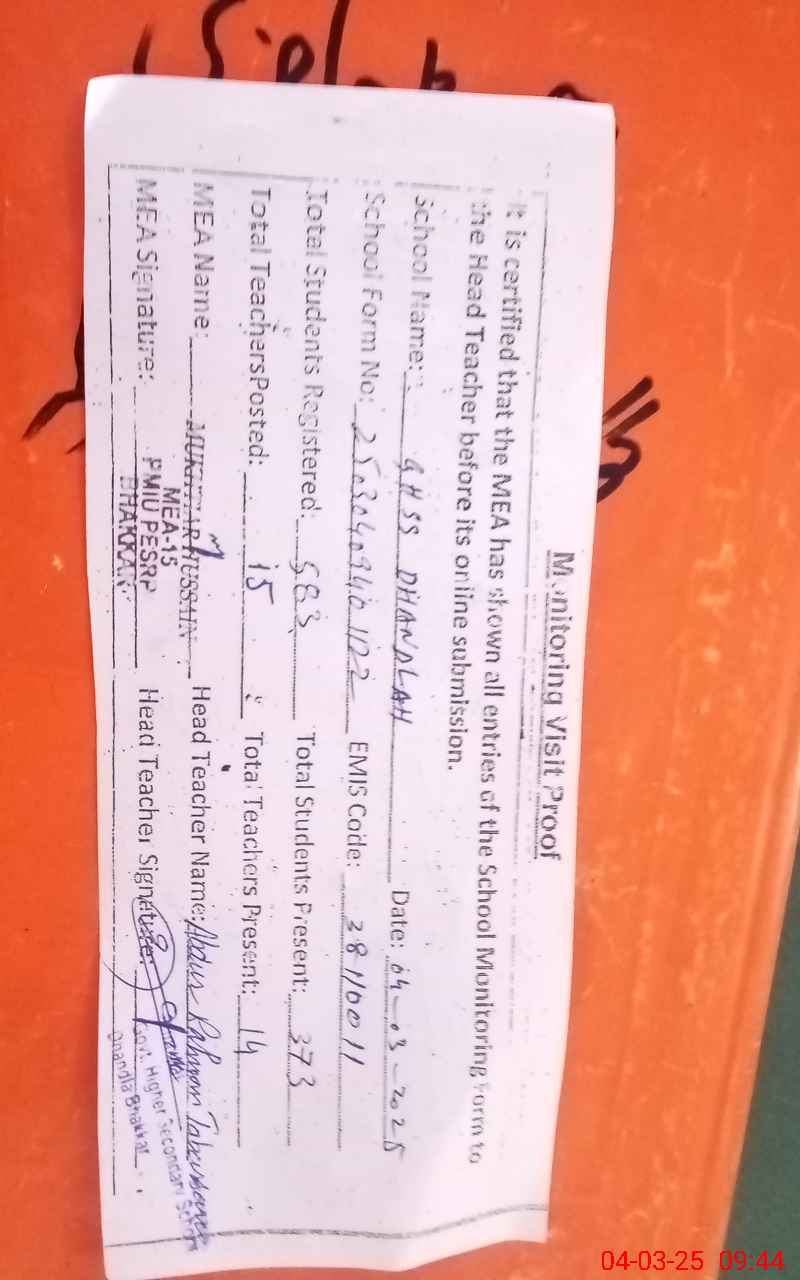 Monitoring Visit Proof
It is certified that the MEA has shown all entries of the School Monitoring Form to
the Head Teacher before its online submission.
School Name: GHSS DHANDLAH Date: 04-03-2025
School Form No: EMIS Code: 38110011
Total Students Registered: 583 Total Students Present: 373
Total Teachers Posted: 15 Total Teachers Present: 14
MEA Name: MUKHTIAR HUSSAIN Head Teacher Name: Abdur Rahman
MEA-15
MEA Signature: PMIU PESRP Head Teacher Signature:
BHAKKAR
Govt. Higher Secondary School
Dhandla Bhakkar
04-03-25 09:44